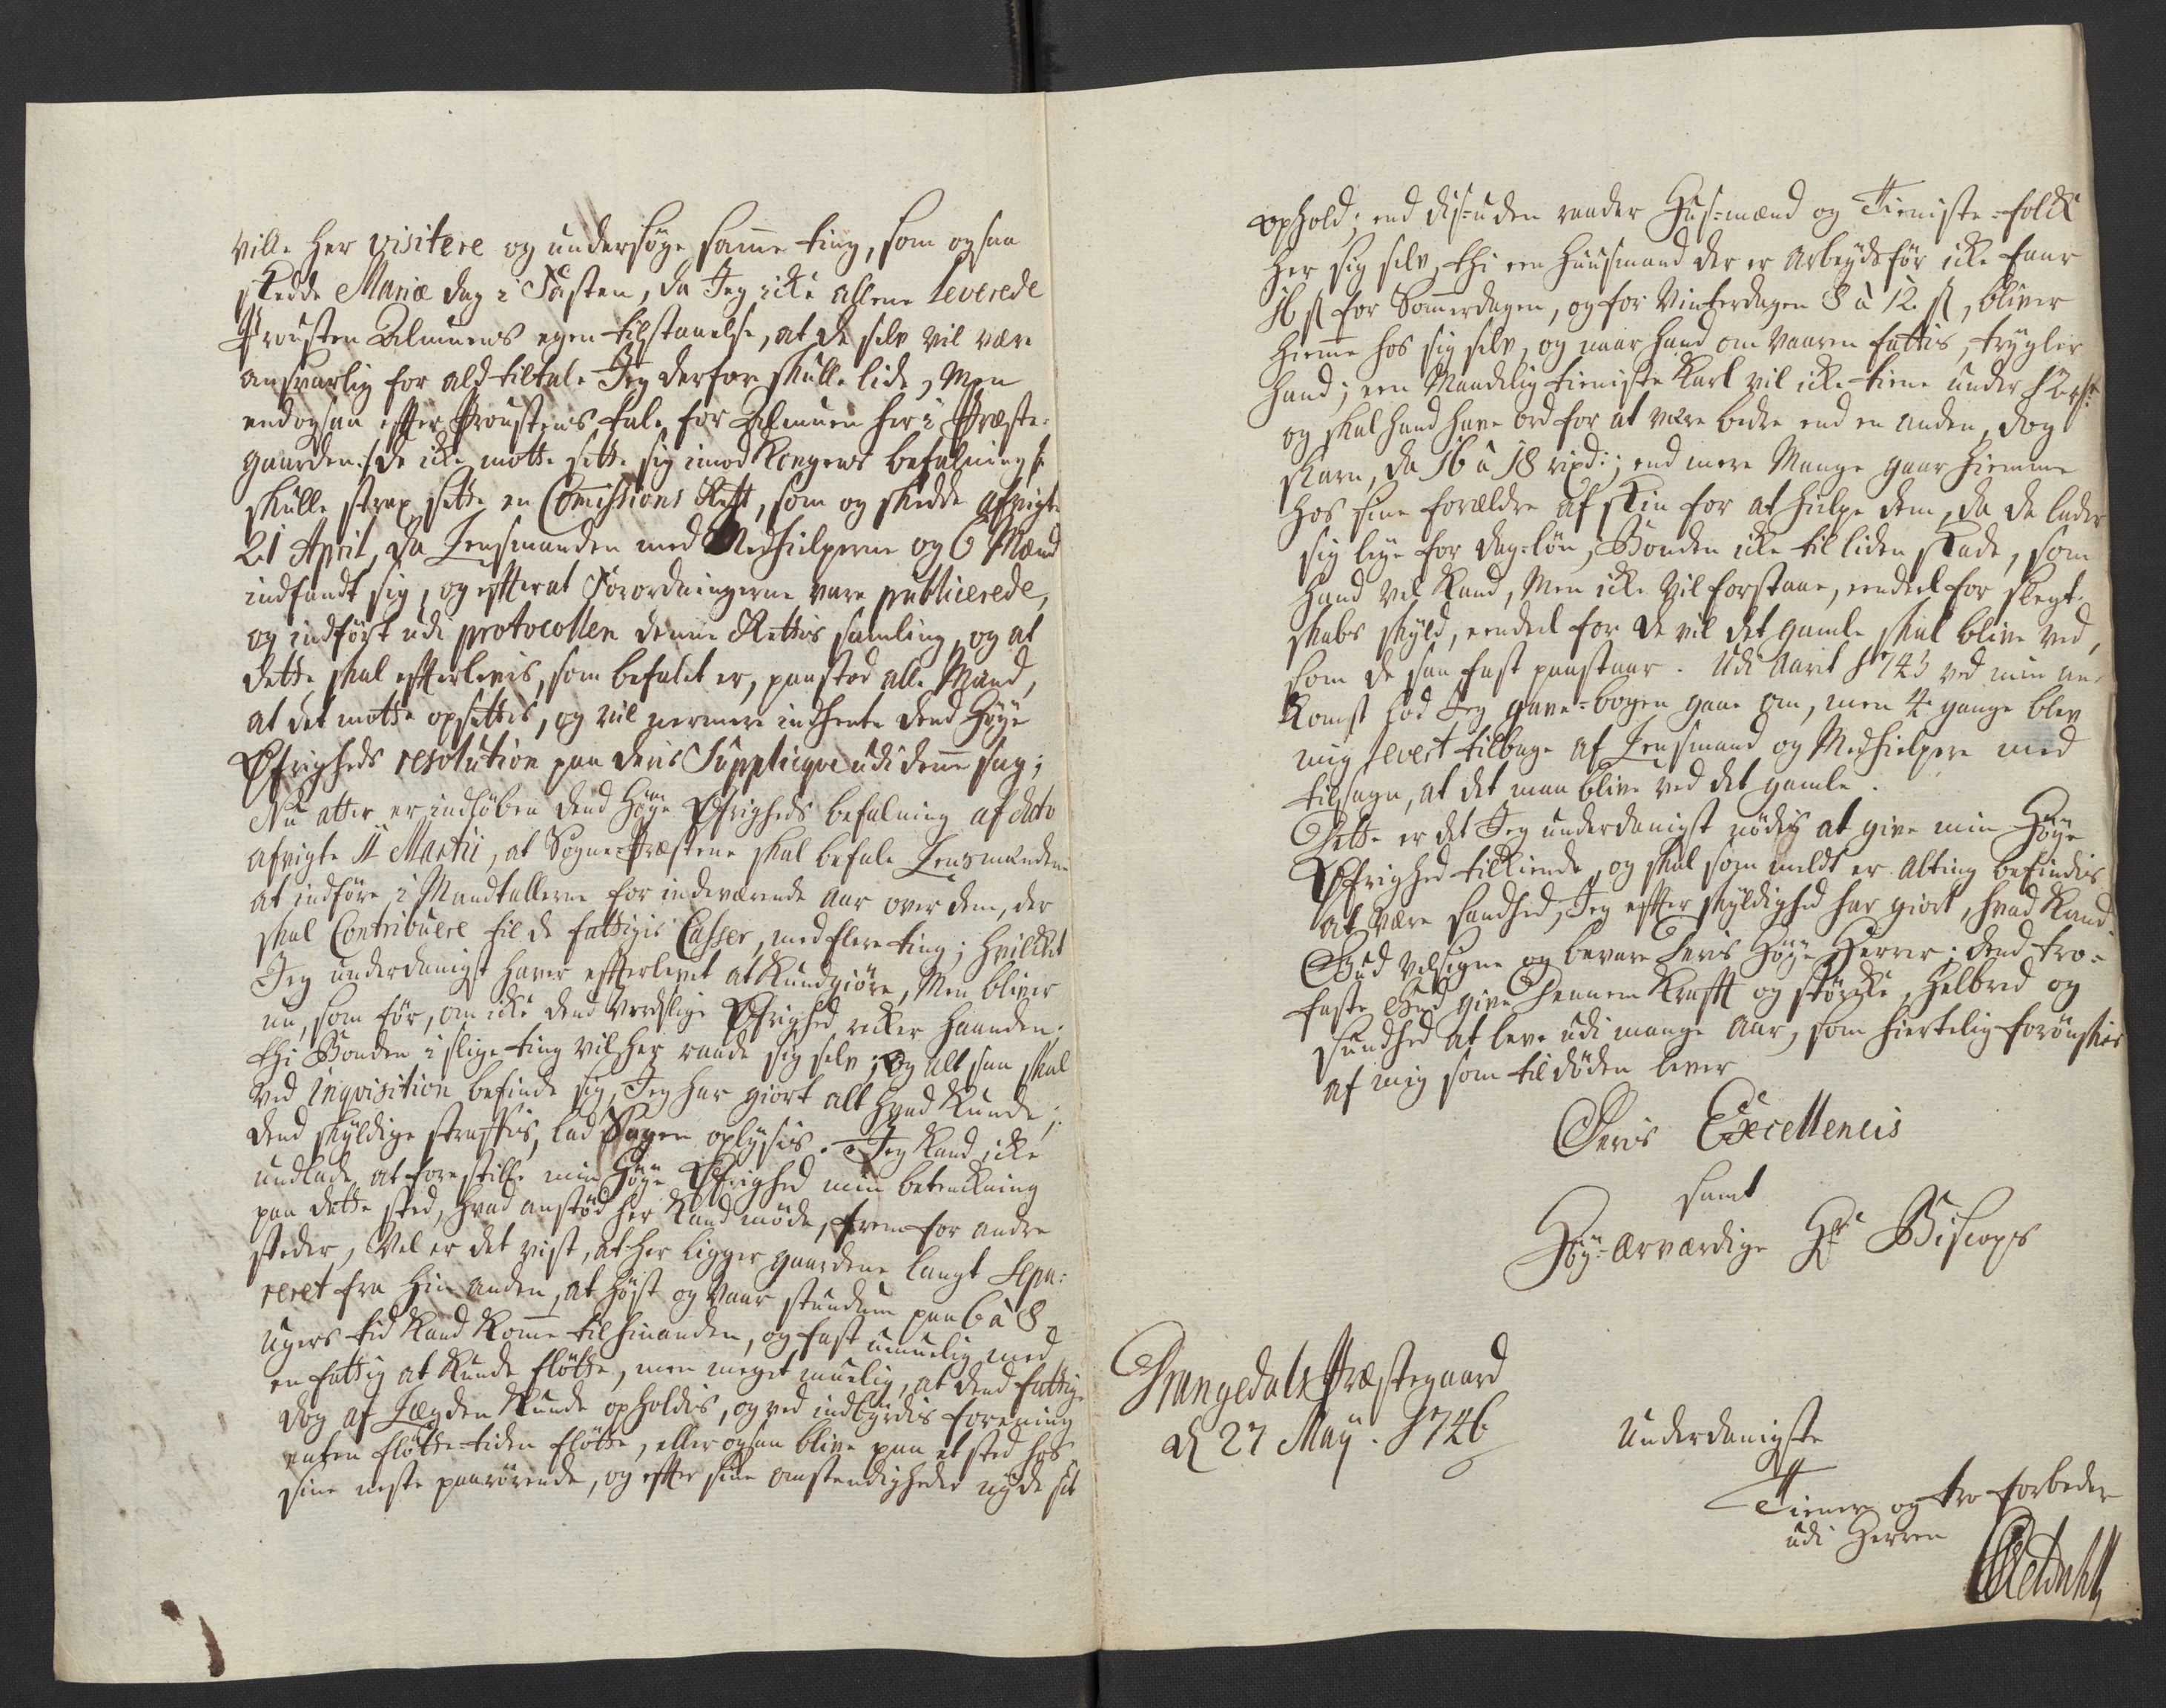 ville her visitere og undersøge samme ting, som ogsaa
skedde Mariæ dag i Fasten, da Jeg icke allene leverede
Prousten Almuens egen tilstaaelse, at de selv vil være
ansvarlig for ald tiltale Jeg derfor skulle lide, Men
endogsaa efter Proustens tale for Almuen her i Præste-
gaarden /: de icke motte sette sig imod Kongens befalning :/
skulle strax sette en Commissions Rett, som og skedde afvigte
21 April, da Lensmanden med Medhielperne og 6 Mænd
indfandt sig, og efterat Forordningerne vare publicerede,
og indført udi protocollen denne Rettes samling, og at
dette skal efterlevis, som befalet er, paastod alle Mand,
at det motte opsettis, og vil nermere indhente dend Høye
Øfrigheds resolution paa deris Supplicqve udi denne sag;
Nu atter er indløben dend Høye Øfrigheds befalning af dato
afvigte 11 Martii, at Sogne-Præstene skal befale Lensmændene
at indføre i Mandtallerne for indeværende aar over dem, der
skal Contribuere til de fattiges Casser, med flere ting; hvilcket
Jeg underdanigst haver efterlevet at kundgiøre, Men bliver
nu, som før, om icke dend Verdslige Øfrighed recker Haanden;
thi Bonden i slige ting vil her raade sig selv; og alt saa skal
ved inqvisition befinde sig, Jeg har giort alt hvad kunde,
dend skyldige straffis, lad Sagen oplysis. Jeg kand icke
undlade at forestille min Høye Øfrighed min betenckning
paa dette sted, hvad anstød her kand møde, frem for andre
steder, Vel er det vist, at her ligger gaardene langt sepa-
reret fra hin anden, at høst og vaar stundum paa 6 à 8
ugers tid kand komme til hinanden, og fast umuelig med
en fattig at kunde flötte, men meget muelig, at dend fattige
dog af Lægden kunde opholdis, og ved indbyrdis forening
enten flötte-tiden flötte, eller ogsaa blive paa et sted hos
sine neste paarørende, og efter sine omstendigheder nyde sit
ophold; end dis-uden raader Huus-mænd og Tieniste-folck
her sig selv, thi een huusmand der er arbeydsför icke faar
16 s for Sommerdagen, og for Vinterdagen 8 à 12 s, bliver
hiemme hos sig selv, og naar hand om Vaaren fattis, trygler
hand; een Maadelig tieniste Karl vil icke tiene under 12 rdr
og skal hand have ord for at være bedre end en anden, dog
skarn, da 16 à 18 rixd:; end mere Mange gaar hiemme
hos sine forældre af skin for at hielpe dem, da de lader
sig leye for dag-løn, Bonden icke til liden skade, som
hand vel kand, Men icke vil forstaae, eendeel for slegt-
skabs skyld, eendeel for de vil det gamle skal blive ved,
som de saa fast paastaar. Udi Aaret 1743 ved min an-
komst lod Jeg gave-bogen gaae om, men 4re gange blev
mig levert tilbage af Lensmand og Medhielpere med
tilsagn, at det maa blive ved det gamle.
Dette er det Jeg underdanigst nødes at give min Høye
Øfrighed tilkiende, og skal som meldt er alting befindis
at være sandhed, Jeg efter skyldighed har giort, hvad kand.
Gud velsigne og bevare deris Høye Herrer; dend tro-
faste Gud give hannem krafft og størcke, Helbred og
sundhed at leve udi mange aar, som hiertelig forønskes
af mig som til døden lever
Deris Excellencis
samt
Høy-ærværdige Hr Biscops
Drangedals Præstegaard
d 27 Maij. 1746
Underdanigste
Tiener og tro forbeder
udi Herren